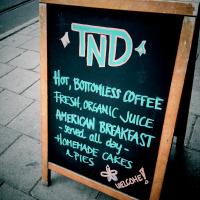 TND
HOT, BOTTOMLESS COFFEE
FRESH, ORGANIC JUICE
AMERICAN BREAKFAST
- served all day -
- HOMEMADE CAKES
& PIES
WELCOME!